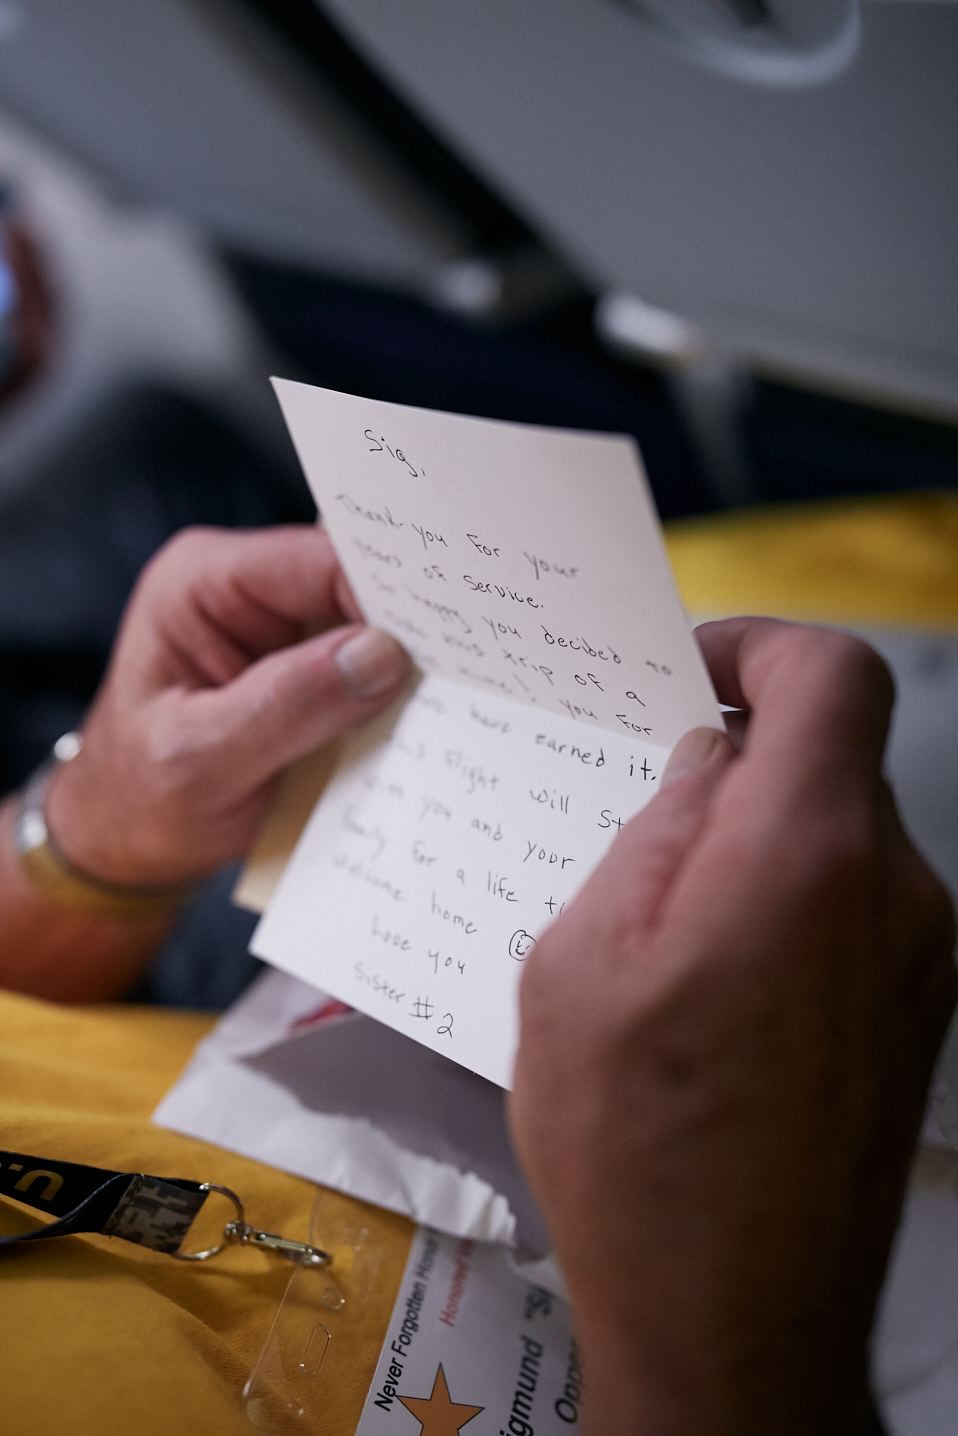 Sig,
Thank you for your
years of service.
So happy you decided to
make this trip of a
life time! You for
sure have earned it.
This flight will St
with you and your
family for a life ti
welcome home
Love you
Sister #2
U.
Never Forgotten Hono
Honored
igmund "Si
Oppe